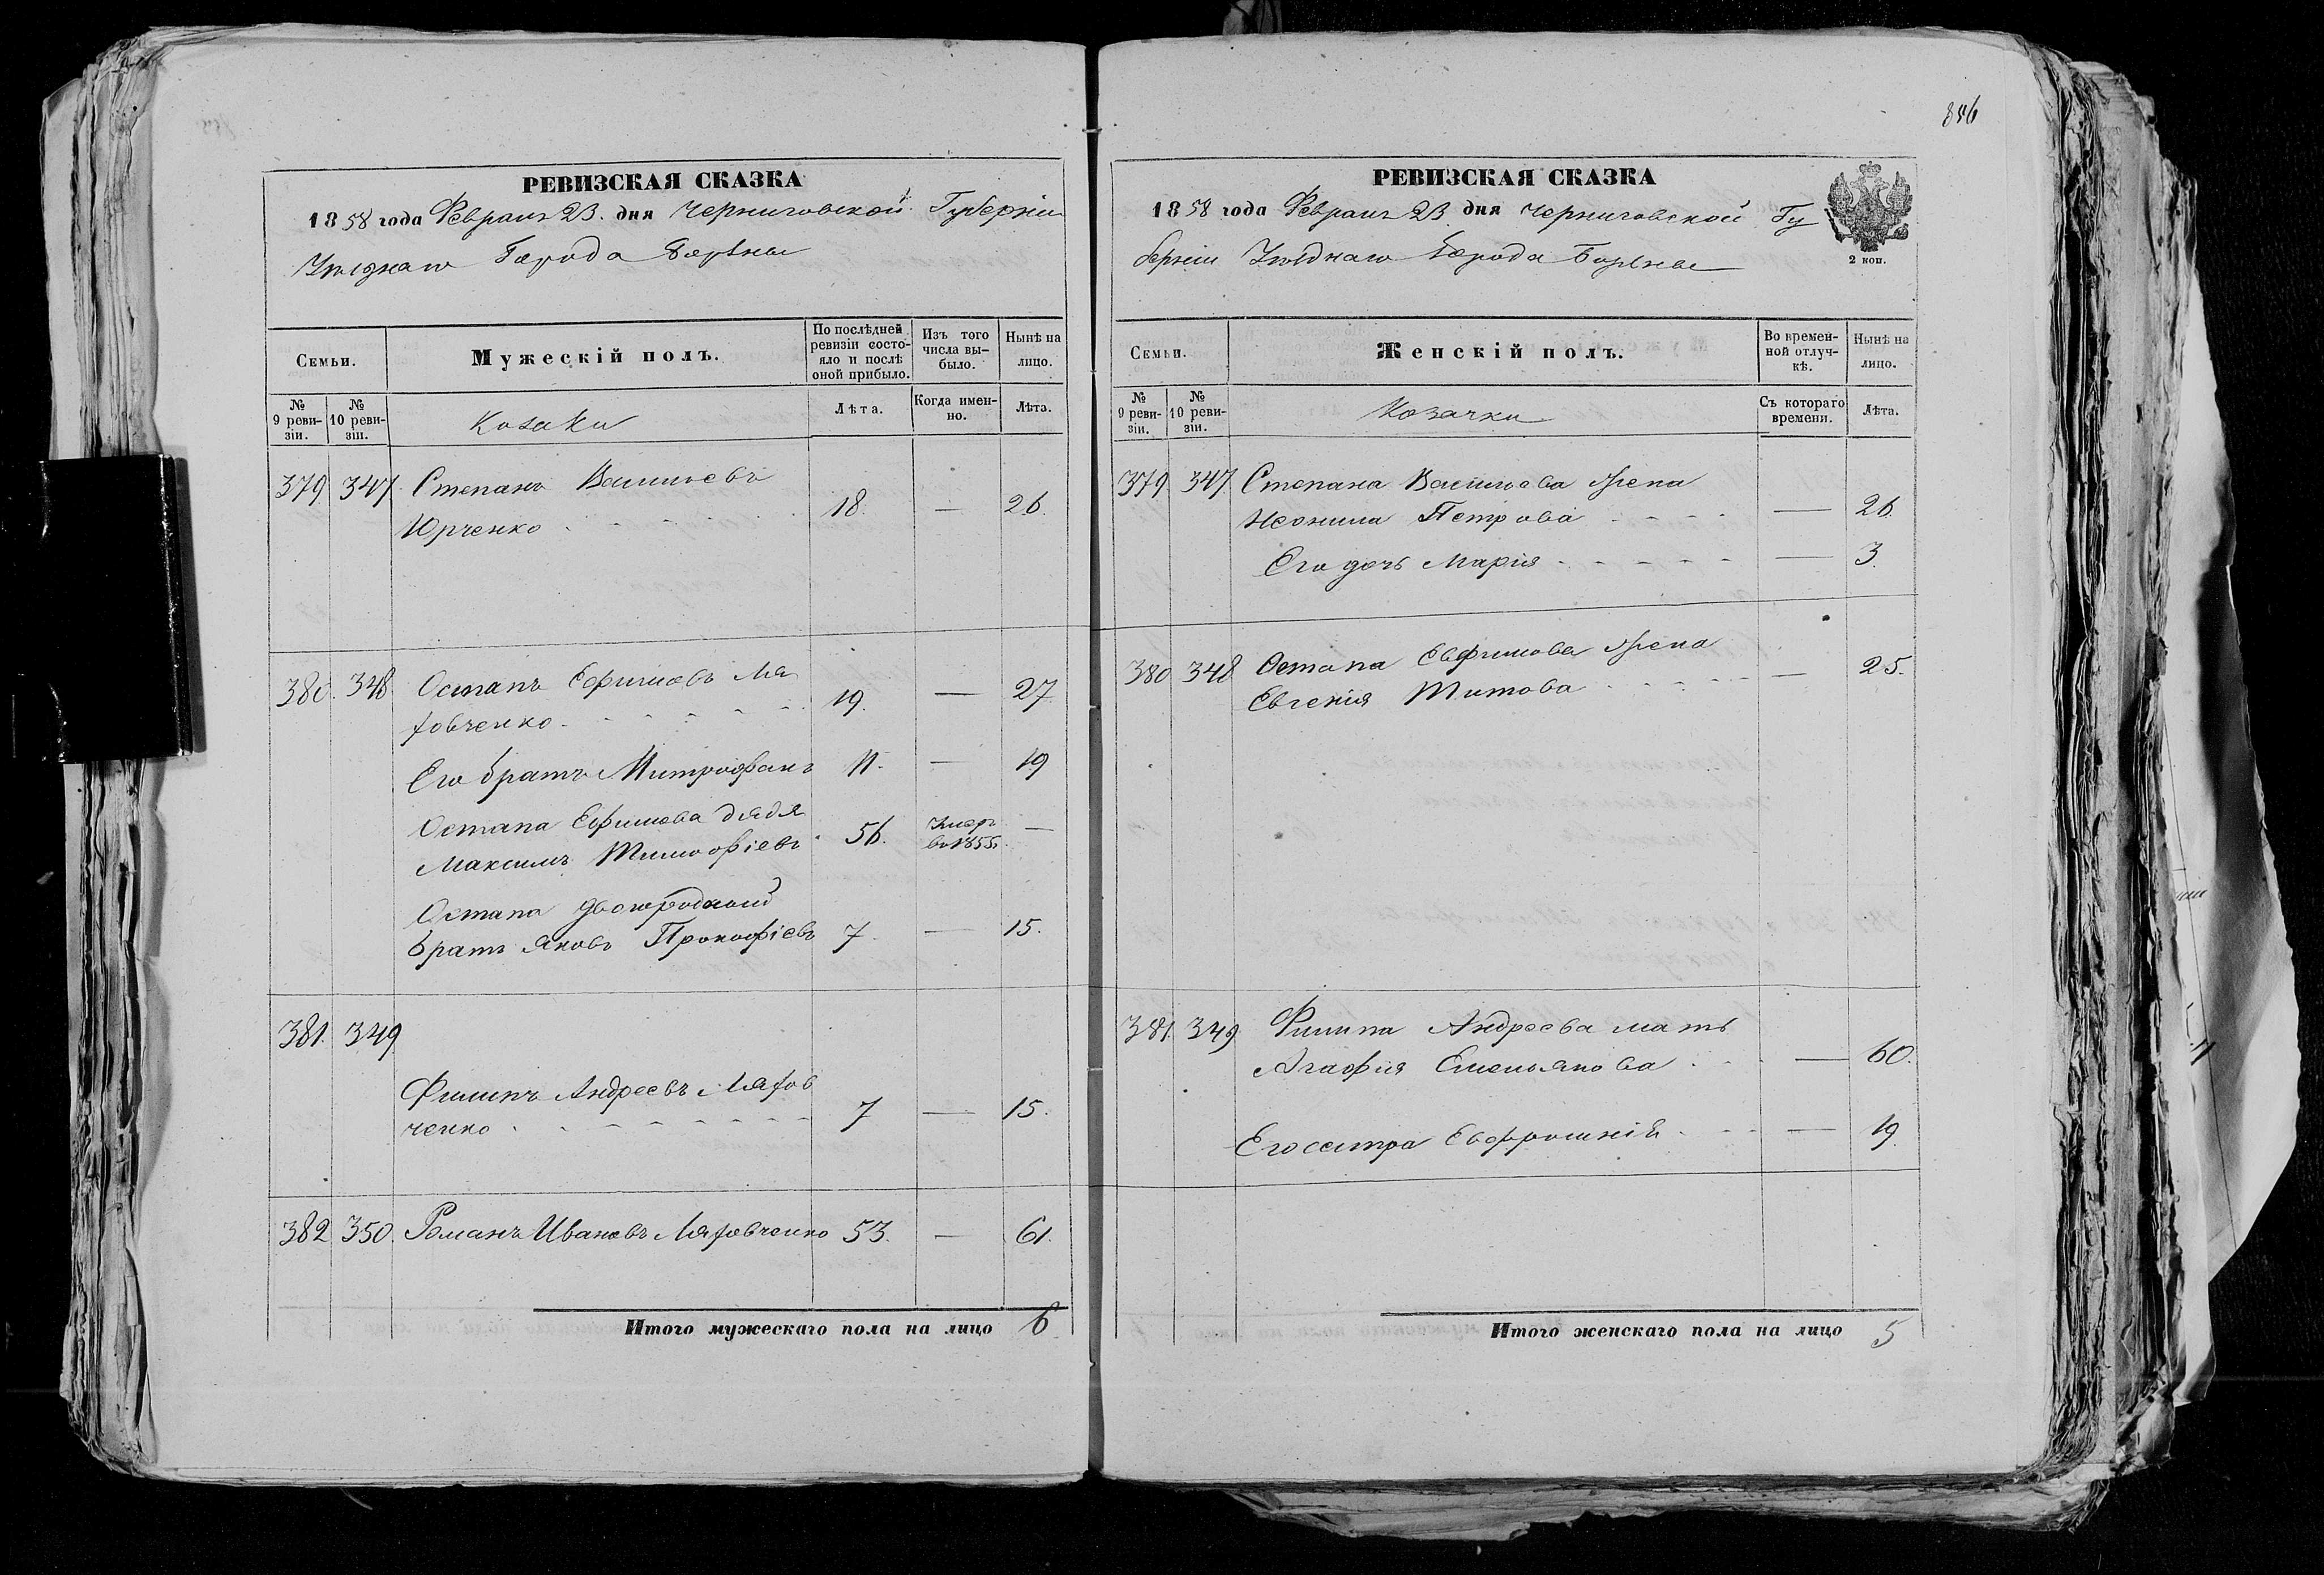 856
РЕВИЗСКАЯ СКАЗКА
1858 года Февраля 23. дня Черниговской Губерніи
Уѣзднаго Города Борзны
Семьи.
Мужескій полъ.
По послѣдней ревизіи состояло и послѣ оной прибыло.
Изъ того числа выбыло.
Нынѣ на лицо.
№ 9 ревизіи.
№ 10 ревизіи.
Козаки
Лѣта.
Когда именно.
Лѣта.
379 347 Степанъ Васильевъ
Юрченко 18. — 26.
380. 348 Остапъ Ефимовъ Ля
ховченко 19. — 27
Его братъ Митрофанъ 11. — 19
Остапа Ефимова дядя
Максимъ Тимофіевъ 56. Умеръ въ 1855 —
Остапа двоюродный
братъ Яковъ Прокофіевъ 7. — 15.
381. 349
Филипъ Андреевъ Ляхов
ченко 7 — 15.
382 350. Романъ Ивановъ Ляховченко 53. — 61.
Итого мужескаго пола на лицо 6
РЕВИЗСКАЯ СКАЗКА
1858 года Февраля 23 дня Черниговской Гу
берніи Уѣзднаго Города Борзны
2 коп.
Семьи.
Женскій полъ.
Во временной отлучкѣ.
Нынѣ на лицо.
№ 9 ревизіи.
№ 10 ревизіи.
Козачки
Съ котораго времени.
Лѣта.
379. 347 Степана Васильева жена
Неонила Петрова — 26.
Его дочь Марія — 3.
380 348 Остапа Евфимова жена
Евгенія Титова — 25.
381. 349 Филипа Андреева мать
Агафія Емельянова — 60.
Его сестра Евфросинія — 19.
Итого женскаго пола на лицо 5